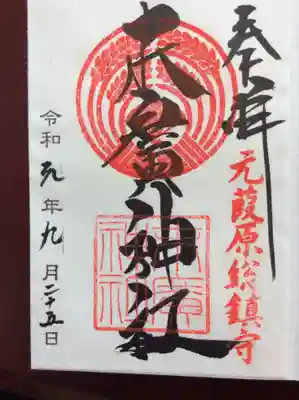 奉拝
元葭原総鎮守
末廣神社
令和元年九月二十五日